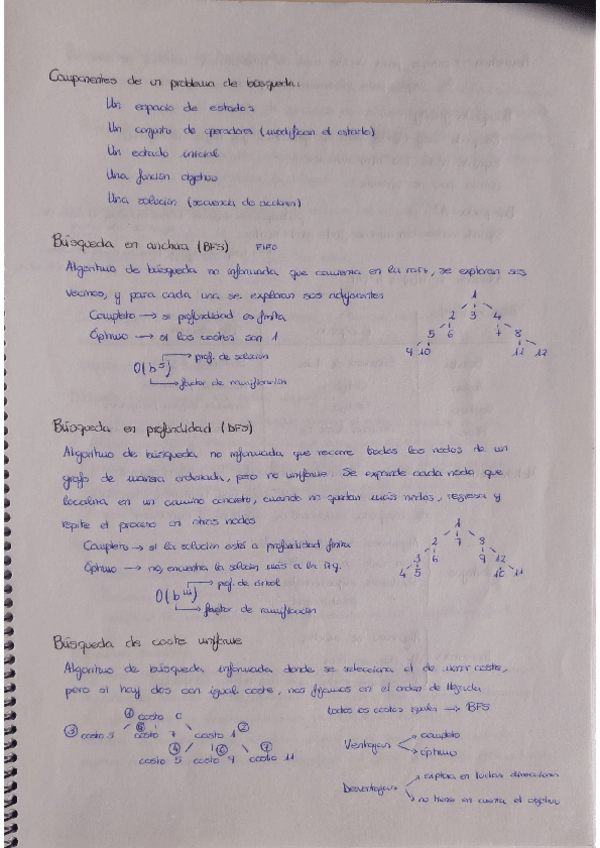 Componentes de un problema de búsqueda:
Un espacio de estados
Un conjunto de operadores (modifican el estado)
Un estado inicial
Una función objetivo
Una solución (secuencia de acciones)
Búsqueda en anchura (BFS) FIFO
Algoritmo de búsqueda no informada que comienza en la raíz, se exploran sus
vecinos, y para cada uno se exploran sus adyacentes
Completo → si profundidad es finita
Óptimo → si los costes son 1
O(b^s) → prof. de solución
→ factor de ramificación
1
2 3 4
5 6 7 8
9 10 11 12
Búsqueda en profundidad (DFS)
Algoritmo de búsqueda no informada que recorre todos los nodos de un
grafo de manera ordenada, pero no uniforme. Se expande cada nodo que
localiza en un camino concreto, cuando no quedan más nodos, regresa y
repite el proceso en otros nodos
Completo → si la solución está a profundidad finita
Óptimo → no, encuentra la solución más a la izq.
O(b^m) → prof. de árbol
→ factor de ramificación
1
2 7 8
3 6 9 12
4 5 10 11
Búsqueda de coste uniforme
Algoritmo de búsqueda informada donde se selecciona el de menor coste,
pero si hay dos con igual coste, nos fijamos en el orden de llegada
todos los costes iguales → BFS
① costo 0
③ costo 3 ⑤ costo 7 costo 1 ②
④ costo 5 ⑥ costo 9 ⑦ costo 11
Ventajas completo
óptimo
Desventajas explora en todas direcciones
no tiene en cuenta el objetivo